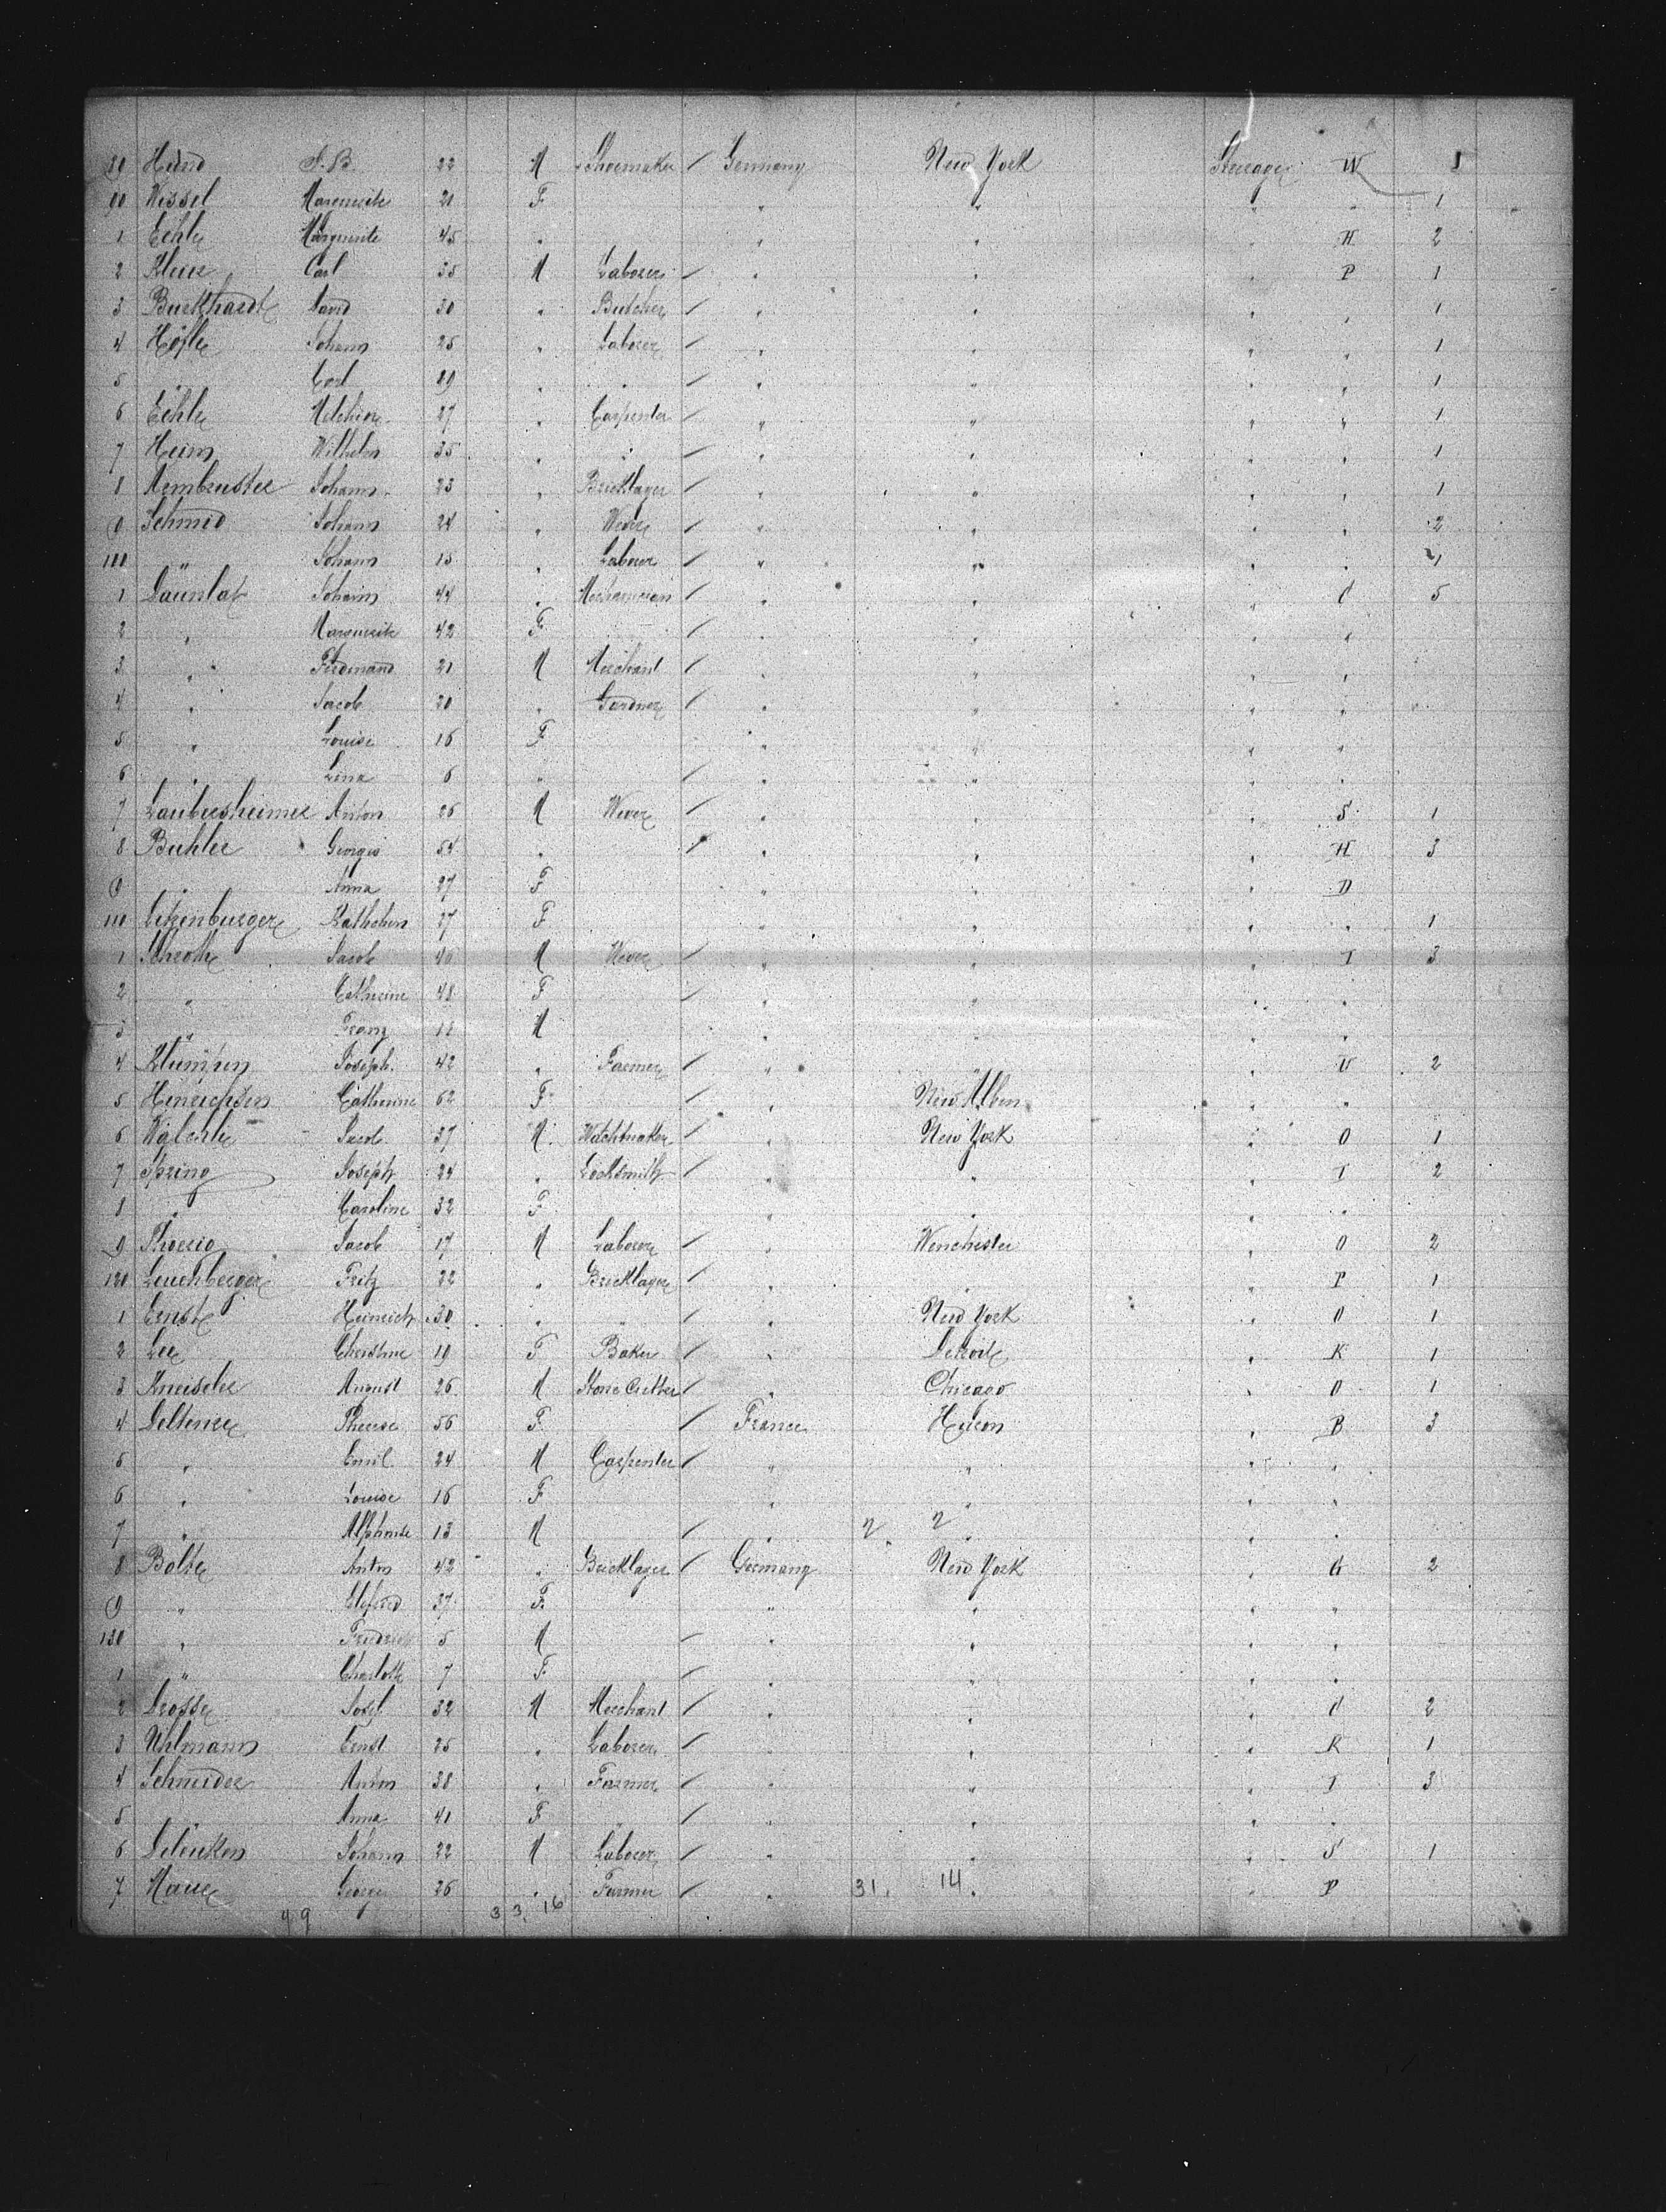 89 Hund J. B. 22 M Shoemaker / Germany New York Steerage W 1
90 Wessel Marguerite 20 F " " " " 1
1 Eehle Marguerite 45 " " " " H 2
2 Klein Carl 35 M Laborer / " " " P 1
3 Burkhardt David 30 " Butcher / " " " " 1
4 Höfle Johann 25 " Laborer / " " " " 1
5 " Carl 29 " " / " " " " 1
6 Eehle Melchior 27 " Carpenter / " " " " 1
7 Heim Wilhelm 35 " " / " " " " 1
8 Armbruster Johann 23 " Bricklayer / " " " " 1
9 Schmid Johann 24 " Wever / " " " " 2
100 " Johann 15 " Laborer / " " " " 1
1 Johann 44 " Mechanician / " " " C 5
2 " Marguerite 42 F / " " " "
3 " Ferdinand 21 M Merchant / " " " "
4 " Jacob 20 " Gardner / " " " "
5 " Louise 16 F " " " "
6 " Lina 6 " / " " " "
7 Laubersheimer Anton 26 M Wever / " " " S 1
8 Buhler Georges 54 " / " " " H 3
9 " Anna 27 F " " " D
110 Kathchen 27 F " " " " 1
1 Schroth Jacob 40 M Wever / " " " I 3
2 " Catherine 48 F / " " " "
3 " Franz 11 M " " " "
4 Klümpen Joseph 42 " Farmer / " " " U 2
5 Heinrichsen Catherine 62 F / " New Alben " "
6 Jacob 37 M Watchmaker / " New York " O 1
7 Spring Joseph 24 " Locksmith / " " " I 2
8 " Caroline 32 F " " " "
9 Jacob 17 M Laborer / " Wenchester " O 2
120 Leuenberger Fritz 22 " Bricklayer / " " " P 1
1 Ernst Heinrich 30 " " / " New York " O 1
2 Lee Christine 19 F Baker / " Detroit " K 1
3 Kneische August 26 M Stone Cutter / " Chicago " O 1
4 Therese 56 F / France Huron " B 3
5 " Emil 24 M Carpenter / " " " "
6 " Louise 16 F " " " "
7 " Alphonse 13 M / " 2 2 " " "
8 Bolte Anton 42 " Bricklayer / Germany New York " G 2
9 " 37 F " " " "
130 " Fredrich 5 M / " " " "
1 " Charlotte 7 F / " " " "
2 Drosse Josef 32 M Merchant / " " " C 2
3 Uhlmann Ernst 25 " Laborer / " " " K 1
4 Schneider Anton 38 " Farmer / " " " I 3
5 " Anna 41 F / " " " "
6 Johann 22 M Laborer / " " " S 1
7 George 26 " Farmer / " 31. 14 " " P
49 33. 16